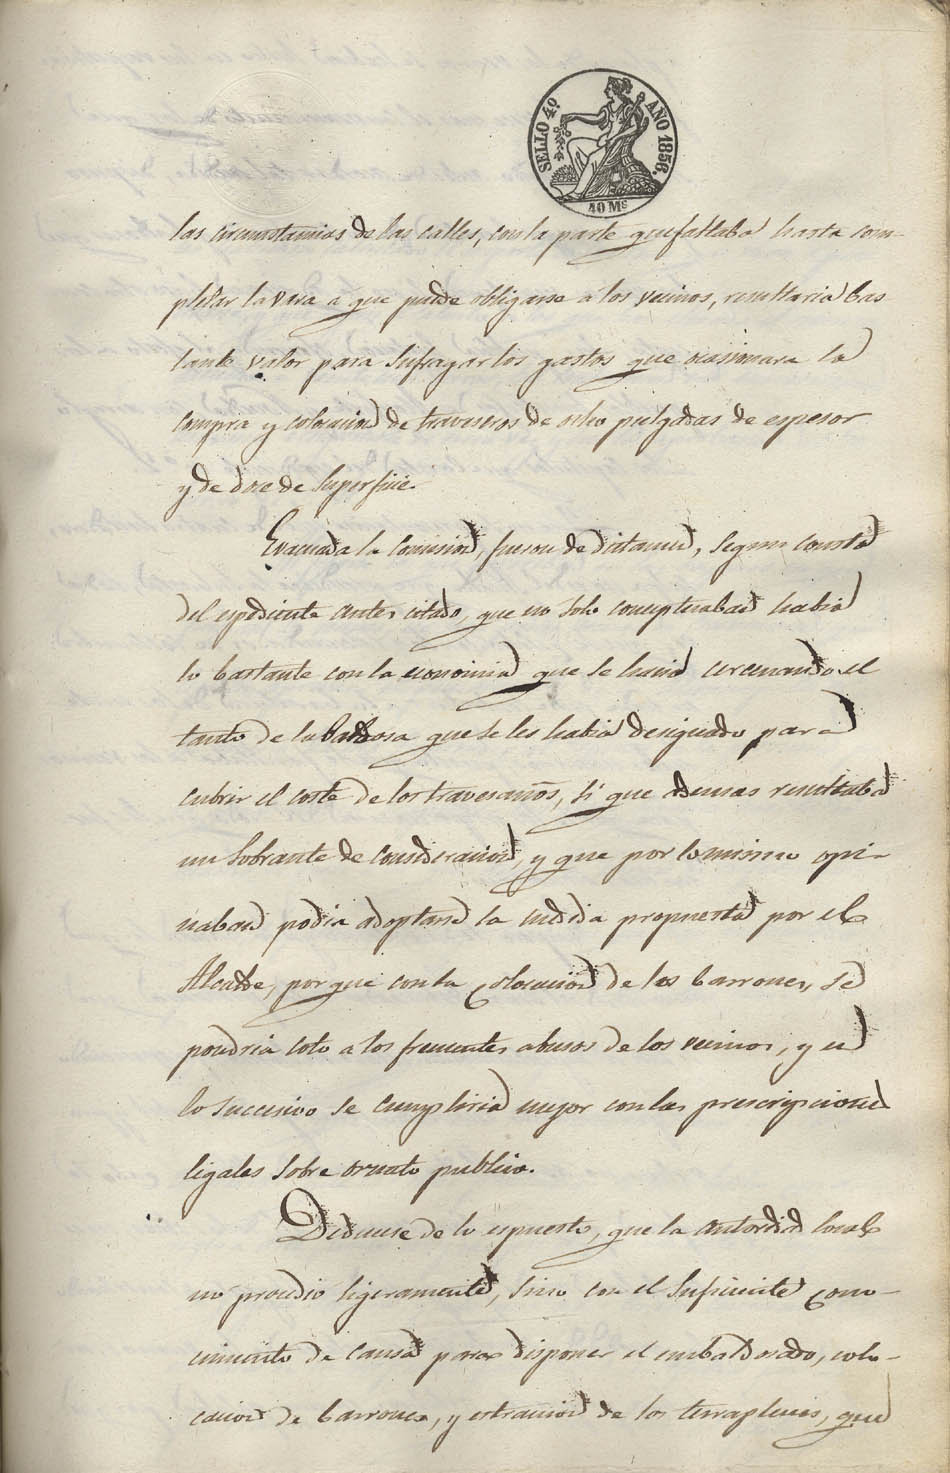 SELLO 4º AÑO 1856.
40 Ms
las circunstancias de las calles, con la parte que faltaba hasta com-
pletar la vara a que puede obligarse a los vecinos, resultaria bas
tante valor para sufragar los gastos que ocasionara la
compra y colocacion de traveseros de ocho pulgadas de espesor
y de doce de superficie.
Evacuada la comision, fueron de dictamen, segun consta
del espediente antes citado, que no solo conceptuaban habia
lo bastante con la economia que se hacia cercenando el
tanto de la baldosa que se les habia designado para
cubrir el coste de los travesaños, si que ademas resultaba
un sobrante de consideracion, y que por lo mismo opi-
naban podia adoptarse la medida propuesta por el
Alcalde, porque con la colocacion de los barrones, se
pondria coto a los frecuentes abusos de los vecinos, y en
lo sucesivo se cumpliria mejor con las prescripciones
legales sobre ornato publico.
Deducese de lo espuesto, que la autoridad local
no procedio ligeramente, sino con el suficiente cono-
cimiento de causa para disponer el embaldosado, colo-
cacion de barrones, y estraccion de los terraplenes, que